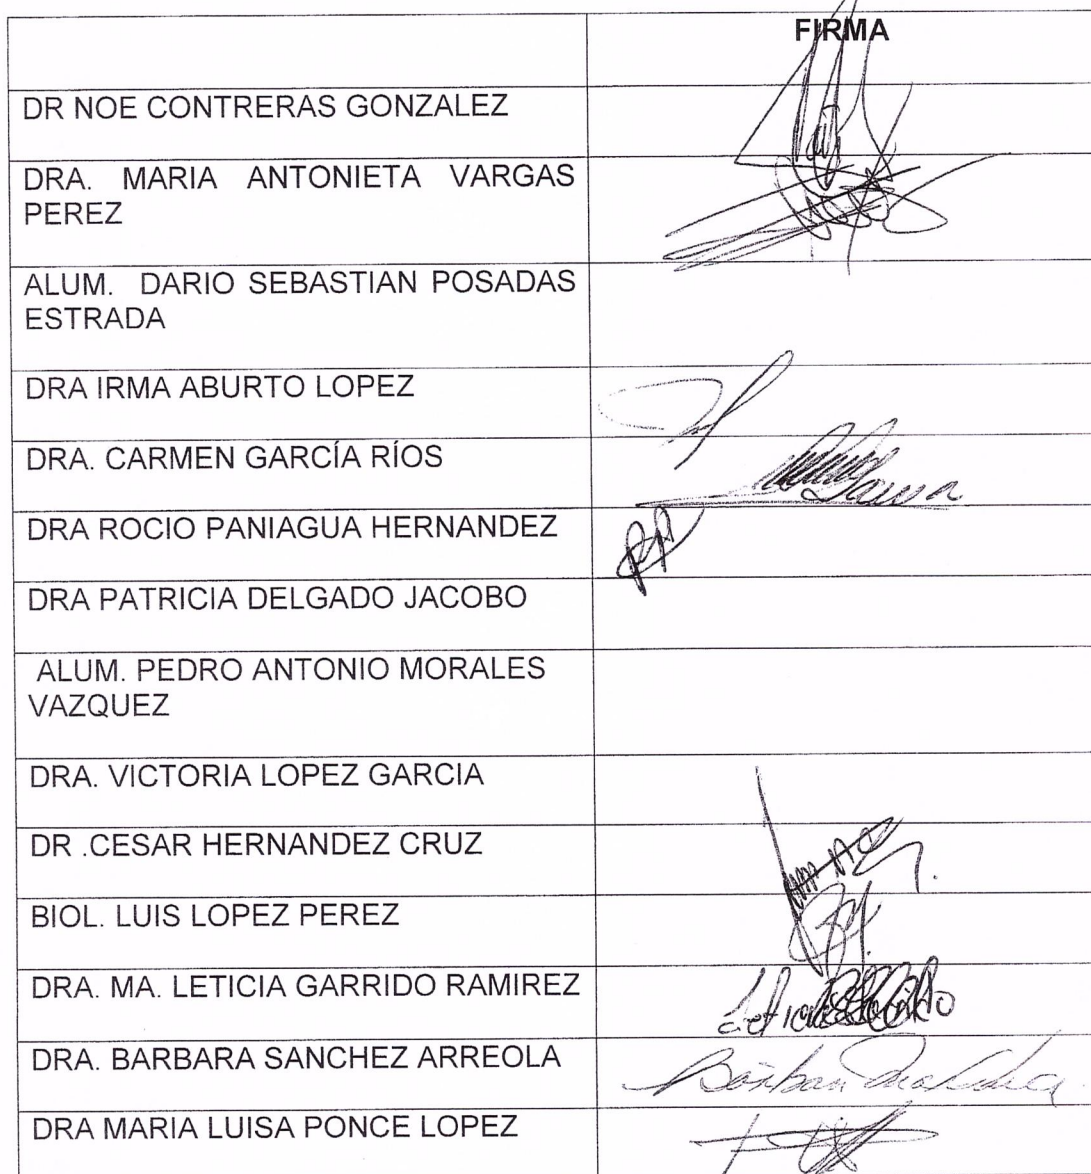 FIRMA
DR NOE CONTRERAS GONZALEZ
DRA. MARIA ANTONIETA VARGAS
PEREZ
ALUM. DARIO SEBASTIAN POSADAS
ESTRADA
DRA IRMA ABURTO LOPEZ
DRA. CARMEN GARCÍA RÍOS
DRA ROCIO PANIAGUA HERNANDEZ
DRA PATRICIA DELGADO JACOBO
ALUM. PEDRO ANTONIO MORALES
VAZQUEZ
DRA. VICTORIA LOPEZ GARCIA
DR .CESAR HERNANDEZ CRUZ
BIOL. LUIS LOPEZ PEREZ
DRA. MA. LETICIA GARRIDO RAMIREZ
DRA. BARBARA SANCHEZ ARREOLA
DRA MARIA LUISA PONCE LOPEZ